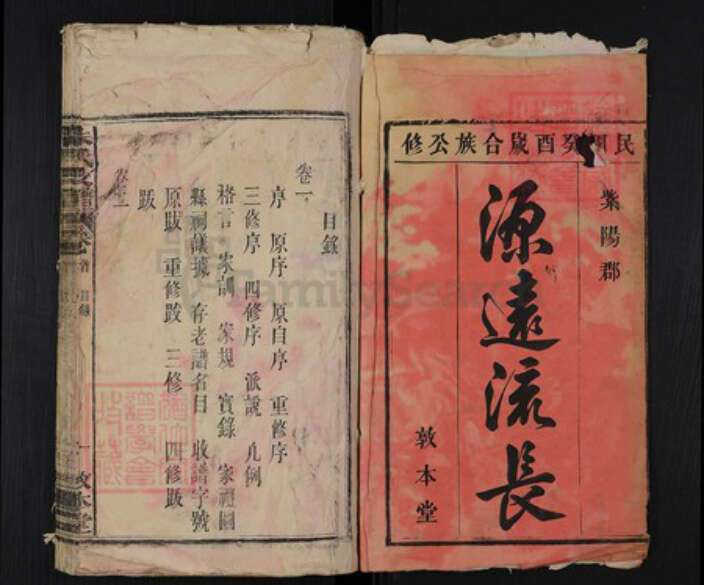 民國癸酉歲合族公修
紫陽郡
源遠流長
敦本堂
目錄
卷一
序 原序 原自序 重修序
三修序 四修序 派說 凡例
格言 家訓 家規 實錄 家禮圖
縣祠議據 存老譜名目 收譜字號
原跋 重修跋 三修 四修跋
跋
卷二
目錄
敦本堂
FamilySearch